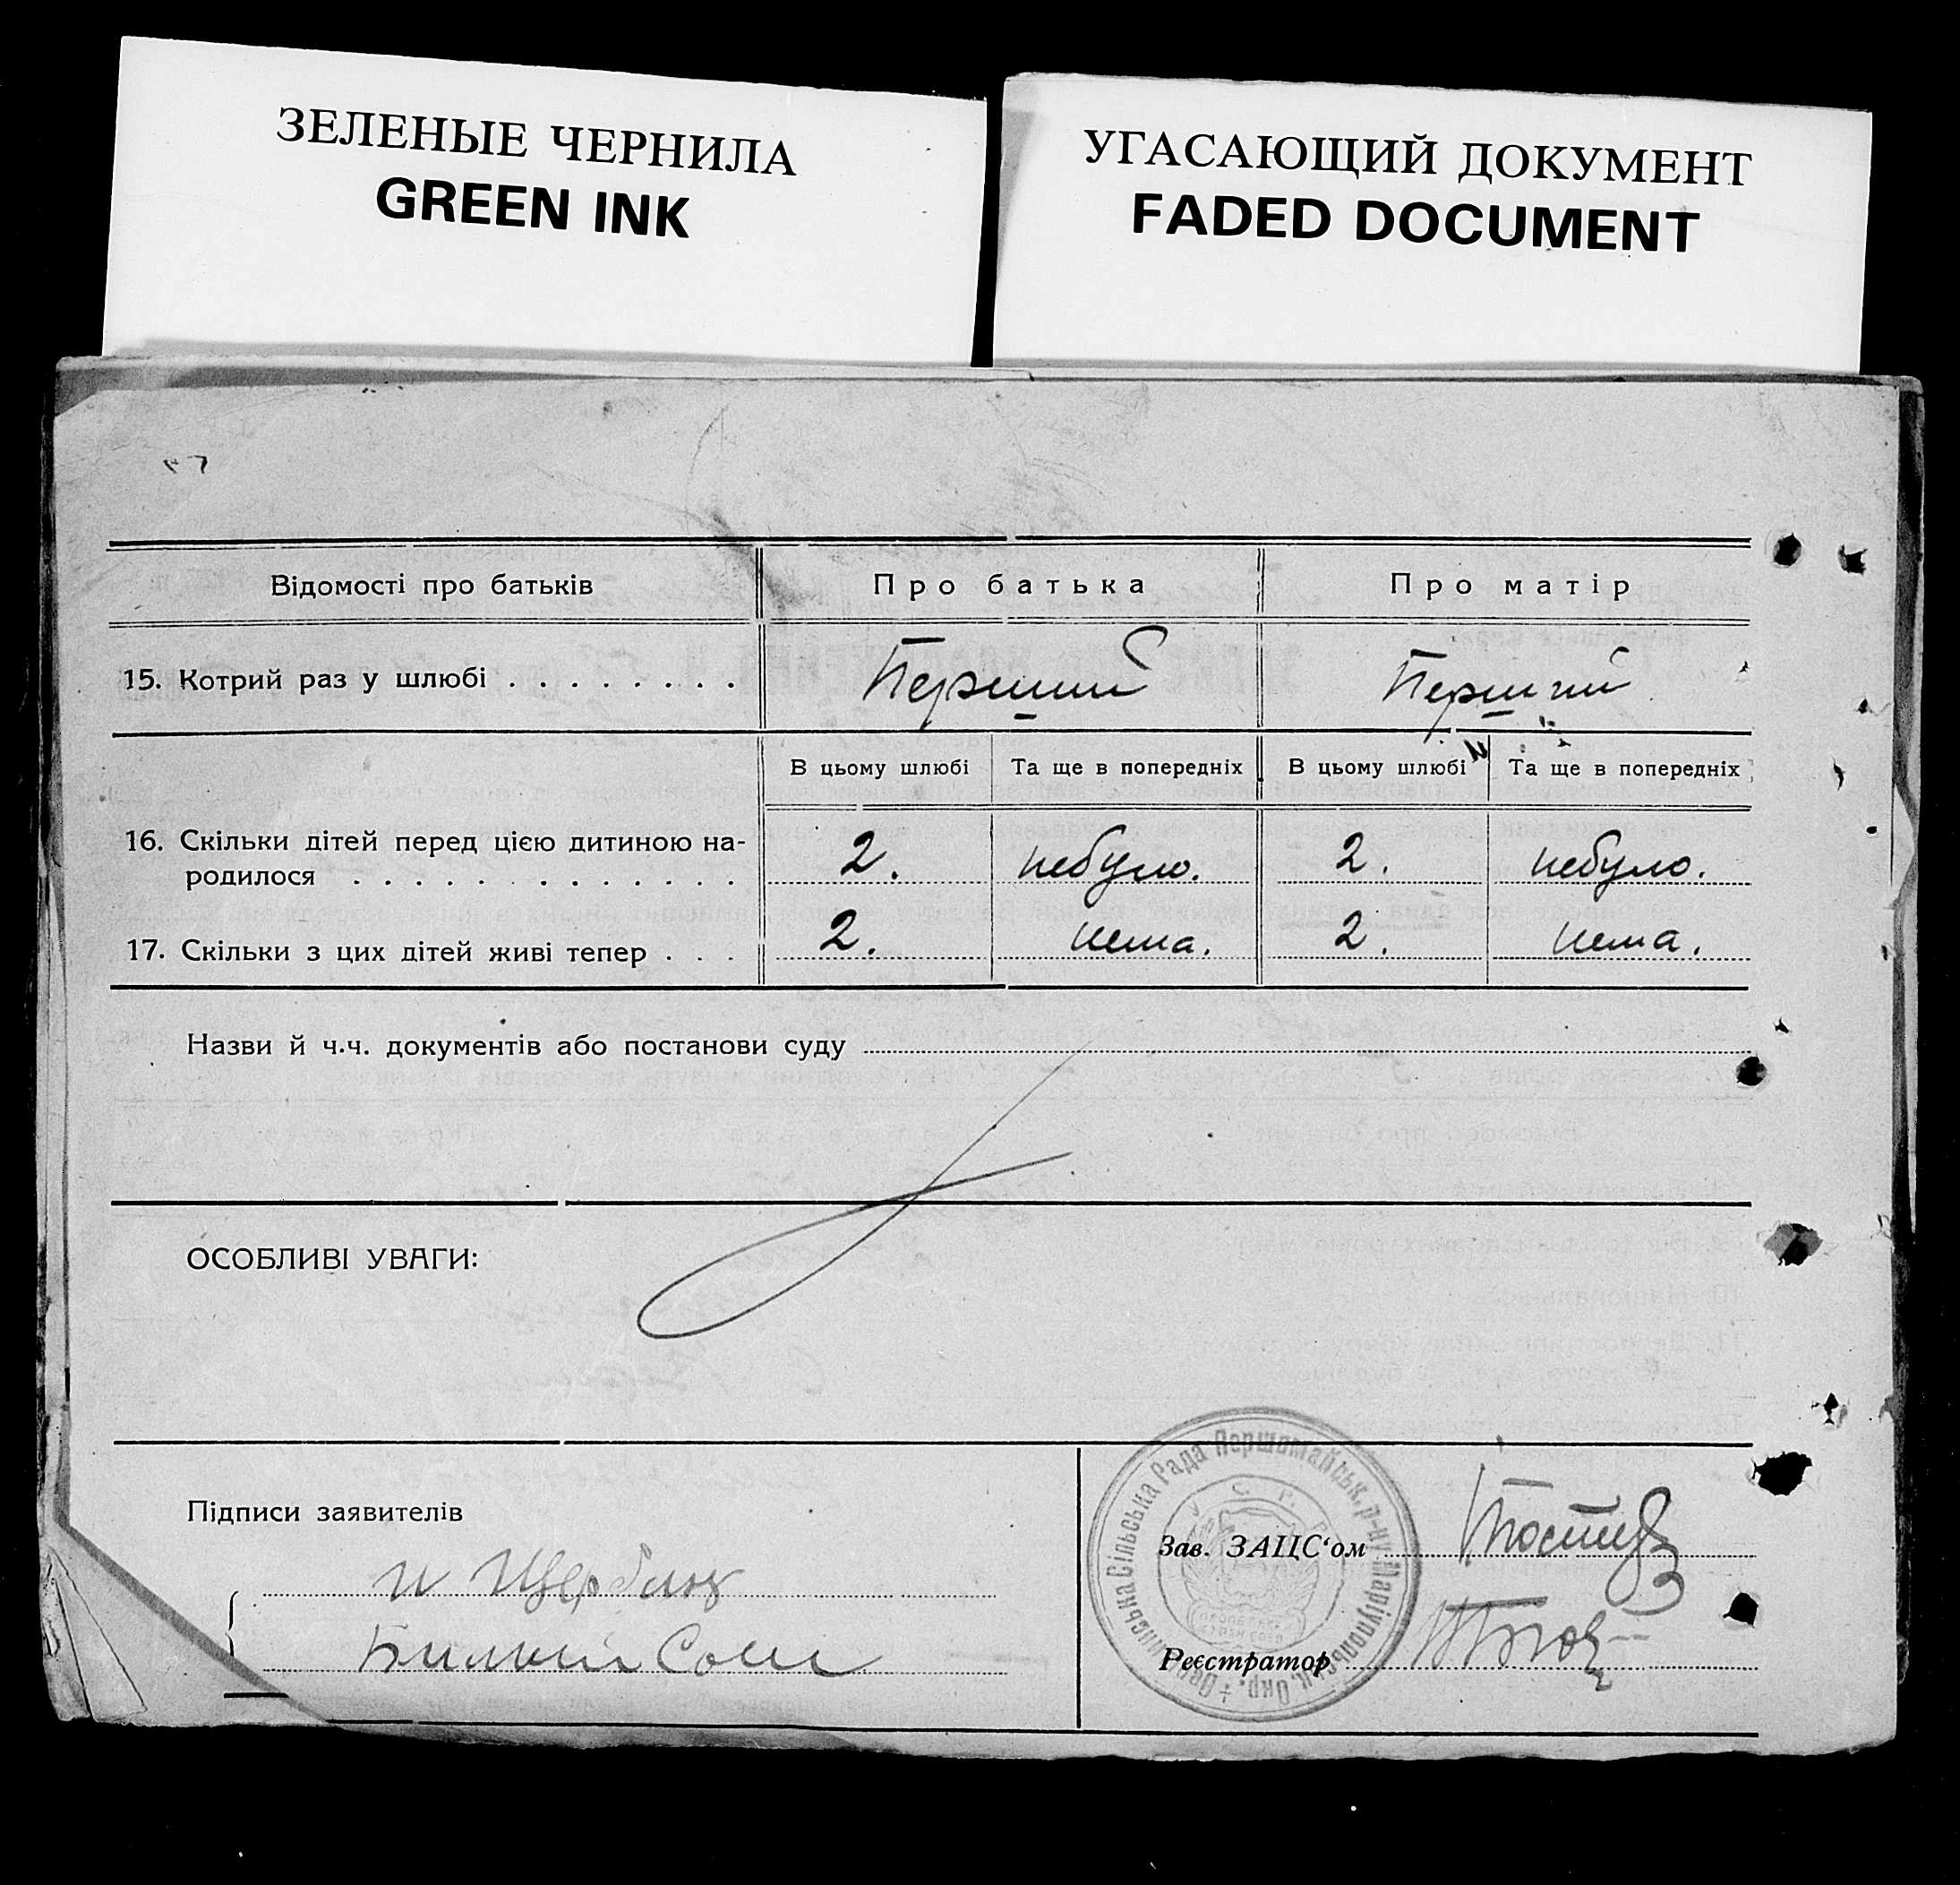 ЗЕЛЕНЫЕ ЧЕРНИЛА
GREEN INK
УГАСАЮЩИЙ ДОКУМЕНТ
FADED DOCUMENT
Відомості про батьків Про батька Про матір
15. Котрий раз у шлюбі . . . . . . . . Перший Перший
В цьому шлюбі Та ще в попередніх В цьому шлюбі Та ще в попередніх
16. Скільки дітей перед цією дитиною на-
родилося . . . . . . . . . . . . . 2. небуло. 2. небуло.
17. Скільки з цих дітей живі тепер . . . 2. нема. 2. нема.
Назви й ч.ч. документів або постанови суду
ОСОБЛИВІ УВАГИ:
Підписи заявителів
Зав. ЗАЦС‘ом
Реєстратор
Сільська Рада Першомайськ. р-ну Маріупольськ. Окр.
У. С. Р. Р.